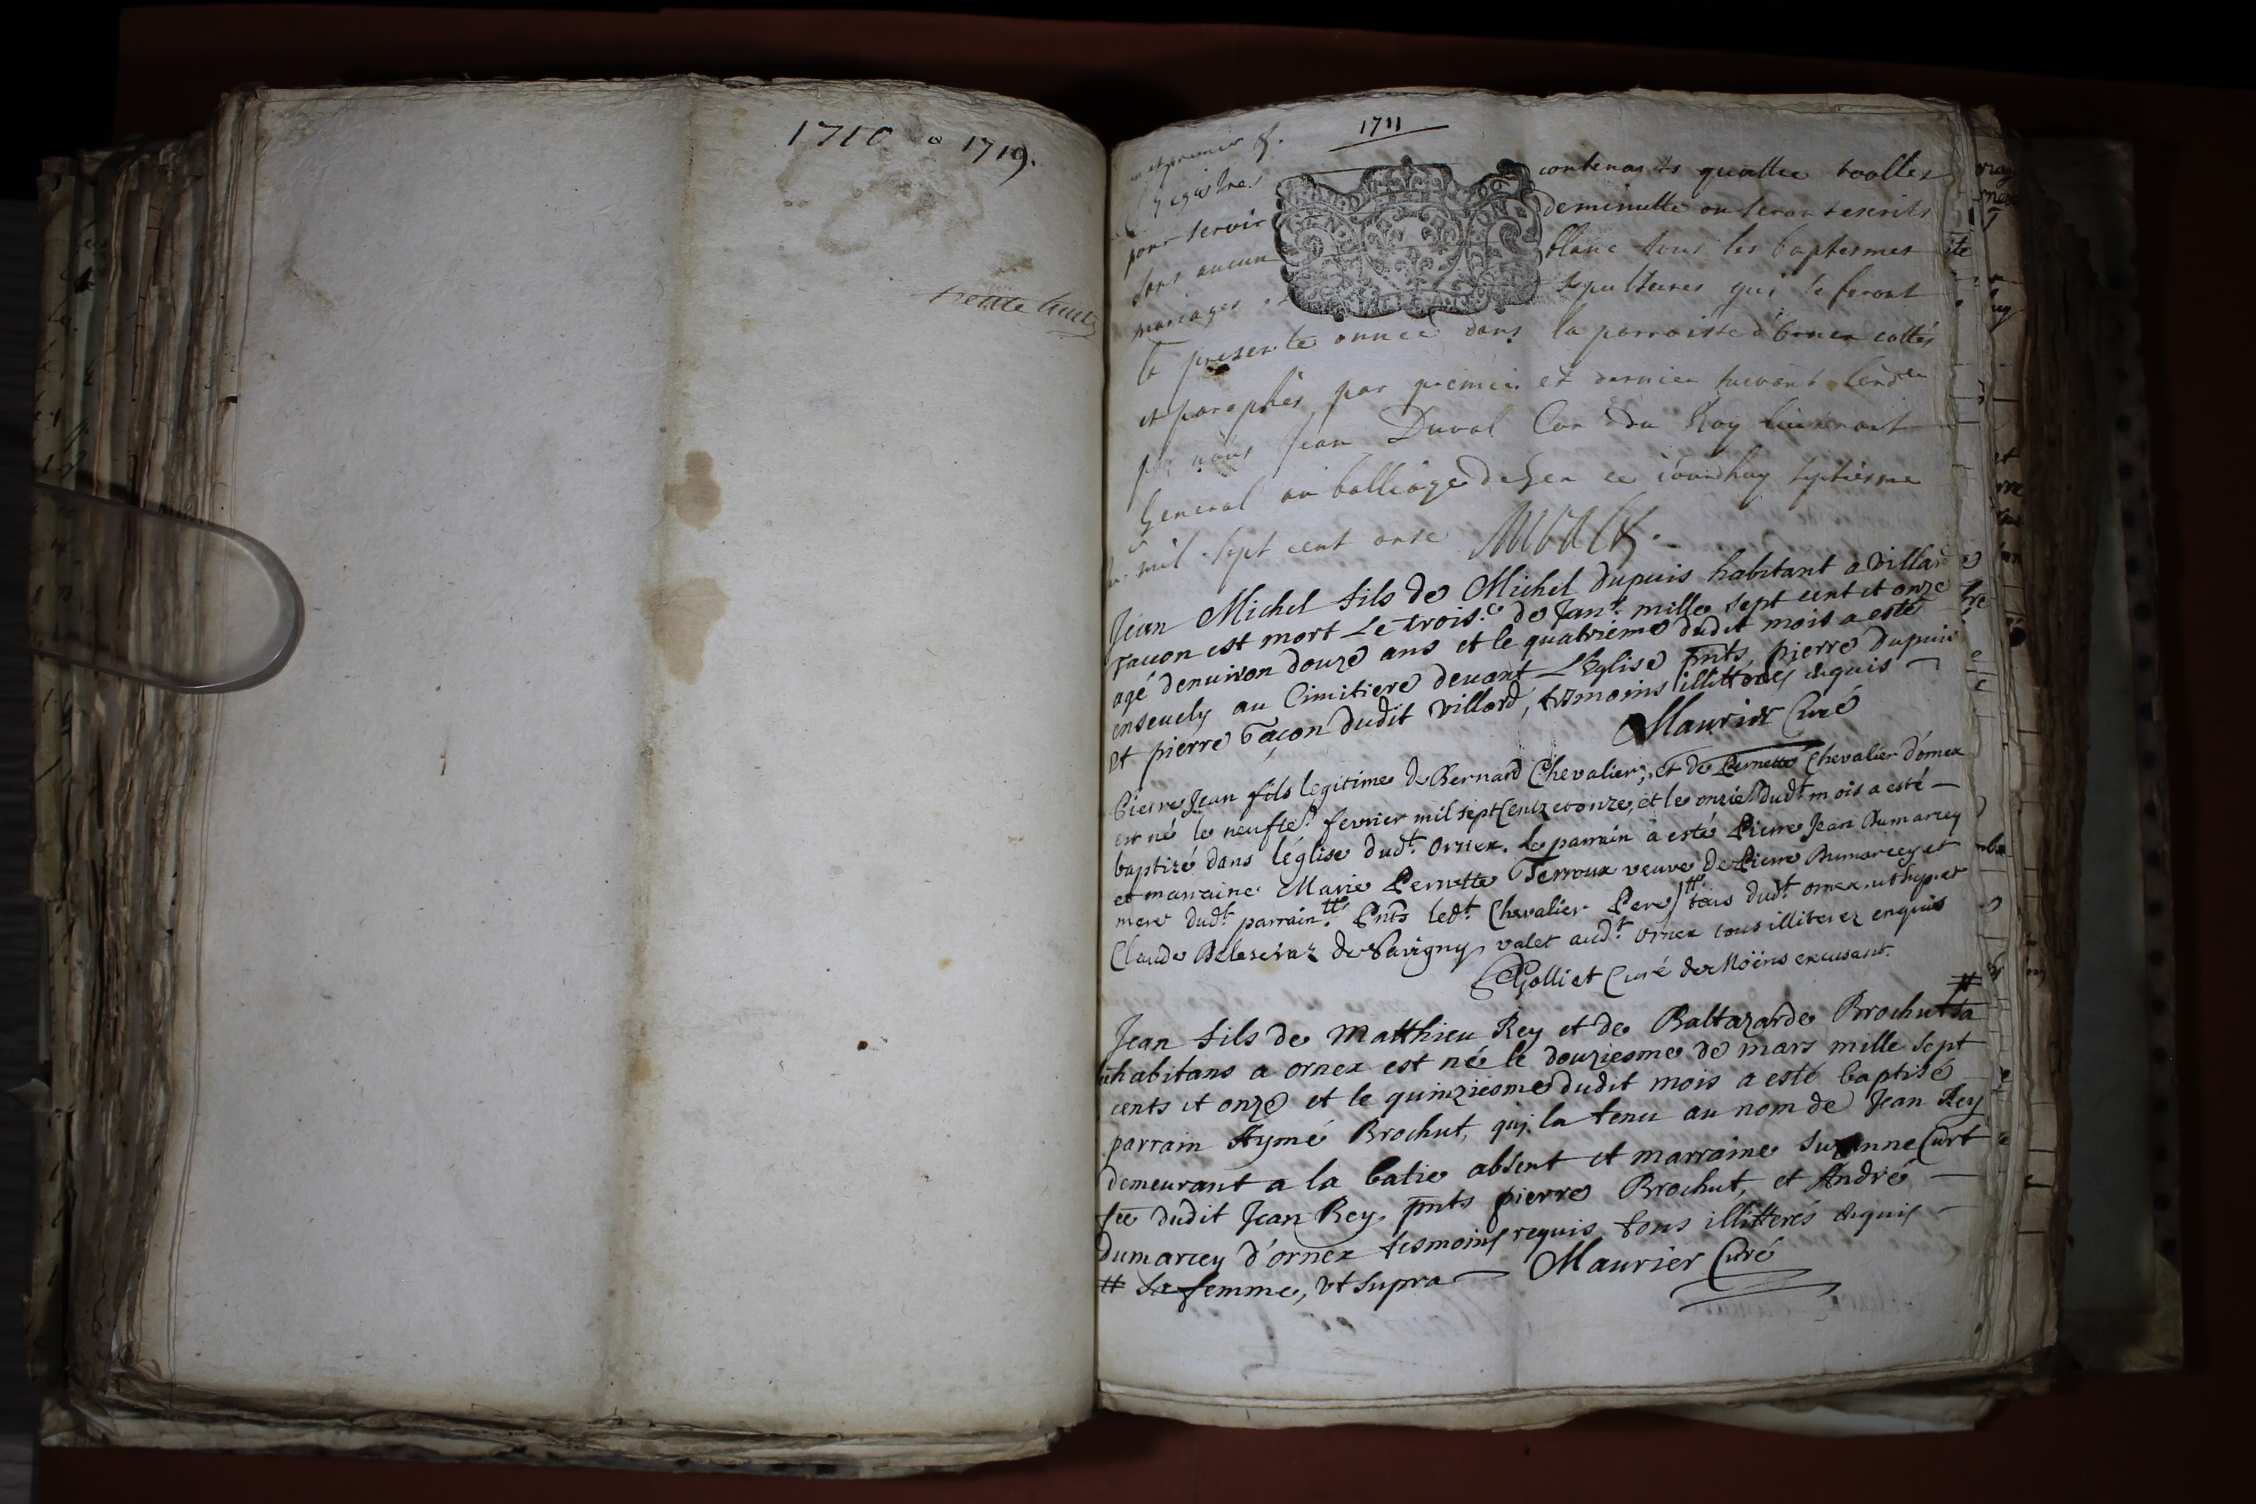 1710 a 1719.
trente huit
1711
et premier
Registre contenants quattre roolles
pour servir deminutte ou seront escrits
sans aucun blanc tous les baptesmes
mariages sepultures qui se feront
la presente annee dans la parroisse d'Ornex cottés
et paraphés par premier et dernier suivant
par nous Jean Duval Con du Roy lieutenant
General au balliage de Gex ce jourdhuy septiesme
mil sept cent onze Duval
Jean Michel fils de Michel dupuis habitant a villard
Tacon est mort Le trois.e de Janr. mille sept cent et onze
agé denuiron douze ans et le quatriéme dudit mois a esté
enseuely au Cimitiere deuant L'Eglise pnts, pierre dupuis
et pierre Tacon dudit villard, tesmoins illitterés enquis
Maurier Curé
Pierre Jean fils legitime de Bernard Chevalier, et de Pernette Chevalier d'ornex
est né le neufie. fevrier mil sept Centz et onze, et le onzie. dudt. mois a esté
baptizé dans léglise dudt. Ornex. Le parrain a esté Pierre Jean Dumarcey
et marraine Marie Pernette Terroux veuve de Pierre Dumarcey et
mere dudt. parrain. Pnts ledt. Chevalier Pere dudt. ornex et
Claude de Savigny valet audt. Ornex tous illiterez enquis
Golliet Curé de Moëns excusant.
Jean fils de Matthieu Rey et de Baltazarde Brochut # sa
habitans a ornex est né le douziesme de mars mille sept
cents et onze et le quinziesme dudit mois a esté baptisé
parrain Aymé Brochut, qui la tenu au nom de Jean Rey
demeurant a la batie absent et marraine suzanne Curt
fee dudit Jean Rey. pnts pierre Brochut, et André
dumarcey d'ornex tesmoins requis tous illitterés enquis
# sa femme, ut supra Maurier Curé